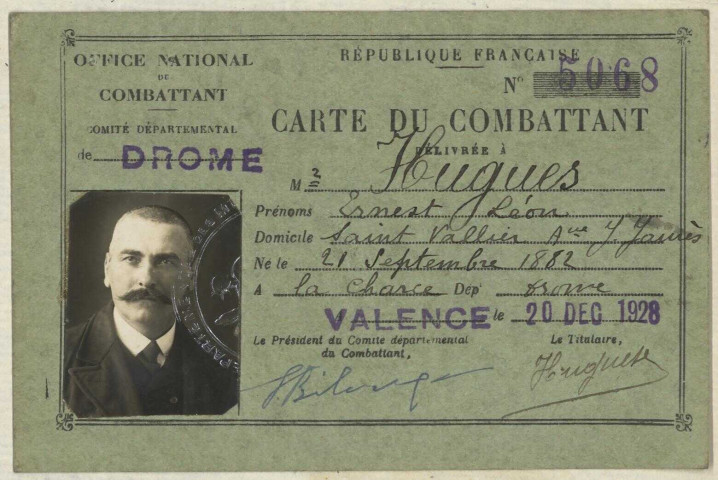 OFFICE NATIONAL
DU
COMBATTANT
COMITÉ DÉPARTEMENTAL
de DROME
RÉPUBLIQUE FRANÇAISE
N° 5068
CARTE DU COMBATTANT
DÉLIVRÉE À
M r Hugues
Prénoms Ernest Léon
Domicile Saint Vallier Aue J Jaurès
Né le 21 Septembre 1882
A la Charce Dep' Drome
VALENCE le 20 DEC 1928
Le Président du Comité départemental
du Combattant,
Le Titulaire,